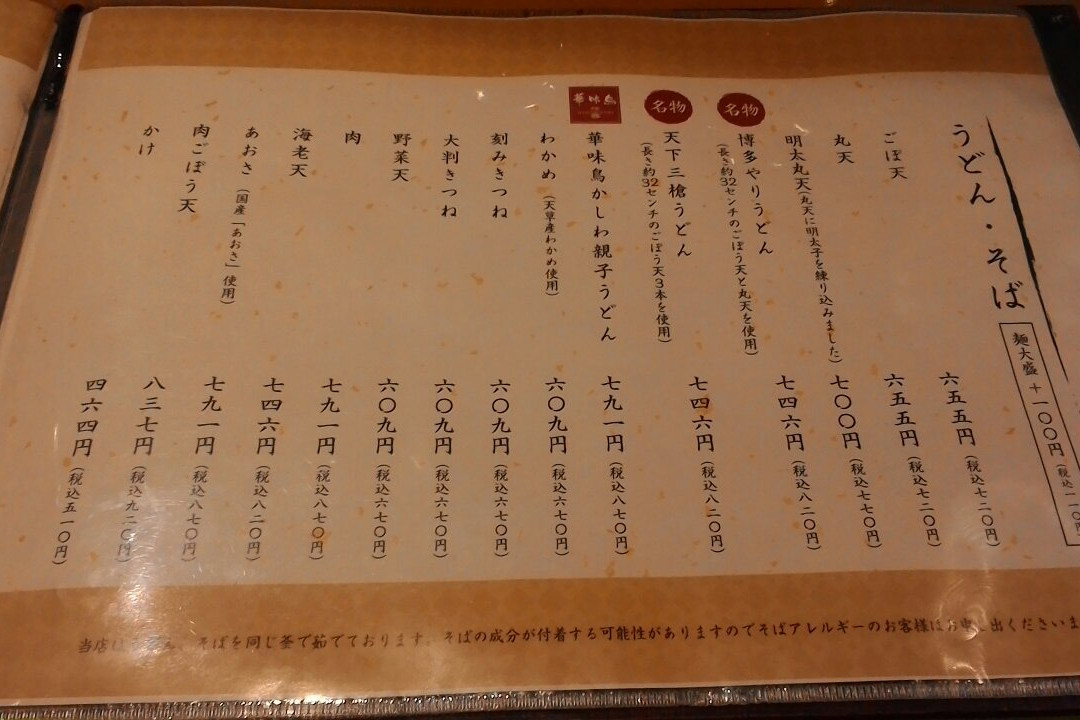 うどん・そば
麺大盛 +一〇〇円(税込一一〇円)
ごぼ天 六五五円(税込七二〇円)
丸天 六五五円(税込七二〇円)
明太丸天(丸天に明太子を練り込みました) 七〇〇円(税込七七〇円)
名物
博多やりうどん 七四六円(税込八二〇円)
(長さ約32センチのごぼう天と丸天を使用)
名物
天下三槍うどん 七四六円(税込八二〇円)
(長さ約32センチのごぼう天3本を使用)
華味鳥
華味鳥かしわ親子うどん 七九一円(税込八七〇円)
わかめ(天草産わかめ使用) 六〇九円(税込六七〇円)
刻みきつね 六〇九円(税込六七〇円)
大判きつね 六〇九円(税込六七〇円)
野菜天 六〇九円(税込六七〇円)
肉 七九一円(税込八七〇円)
海老天 七四六円(税込八二〇円)
あおさ(国産「あおさ」使用) 七九一円(税込八七〇円)
肉ごぼう天 八三七円(税込九二〇円)
かけ 四六四円(税込五一〇円)
当店はうどん、そばを同じ釜で茹でております。そばの成分が付着する可能性がありますのでそばアレルギーのお客様はお申し出くださいま